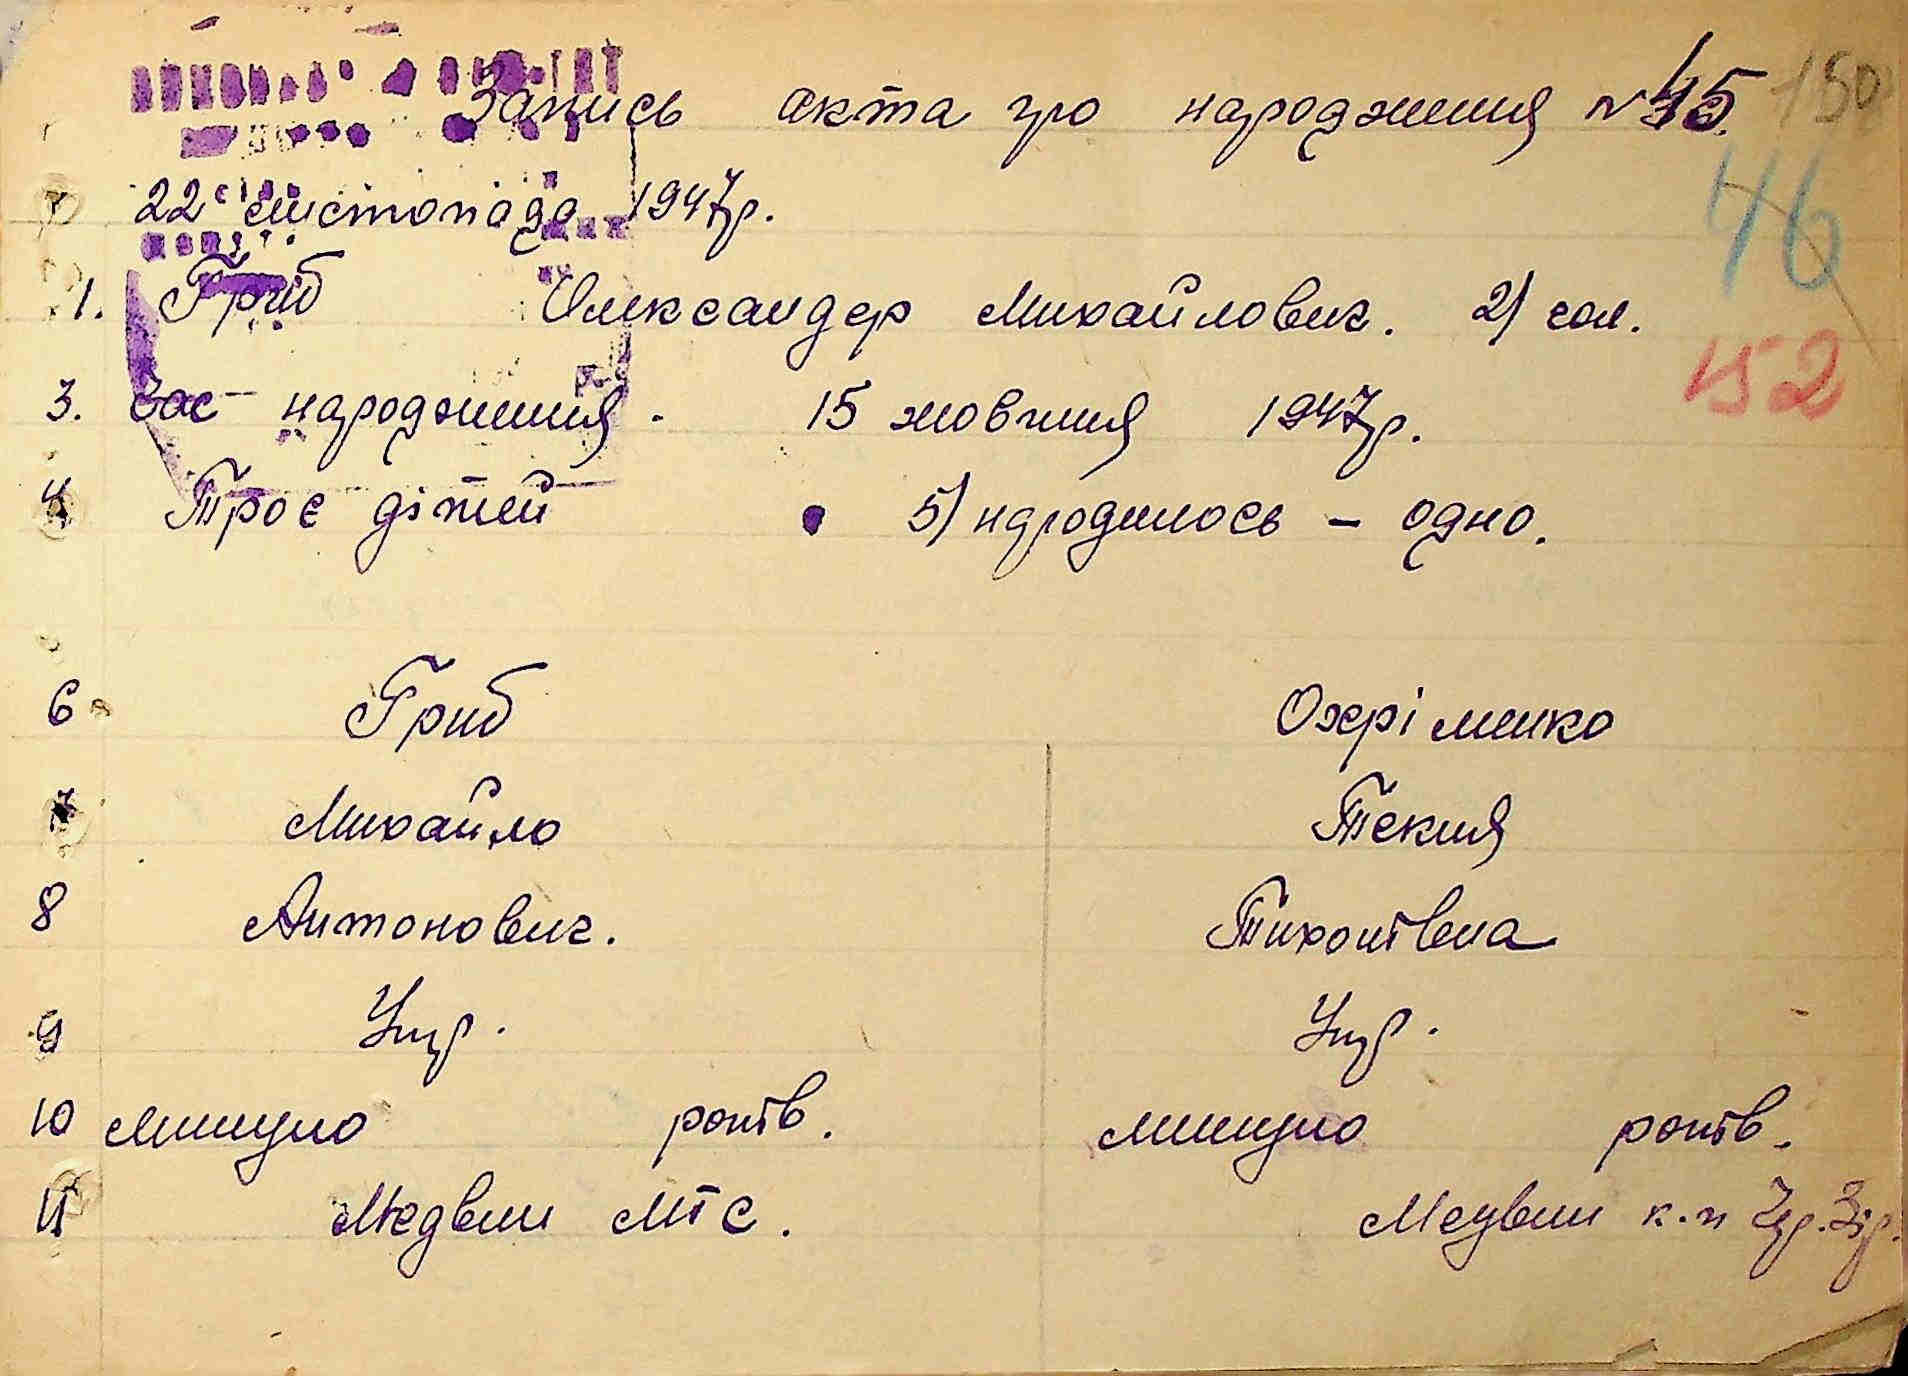 Запись акта про народження № 45. 150
22 листопада 1947р.
46
1. Гриб Олександер Михайлович. 2) чол.
152
3. Час народження. 15 жовтня 1947р.
4 Троє дітей 5) народилось - одно.
6 Гриб Охріменко
7 Михайло Текля
8 Антонович. Тихонівна
9 Укр. Укр.
10 минуло років. минуло років.
11 Медвин МТС. Медвин к-п Чер. Зір.